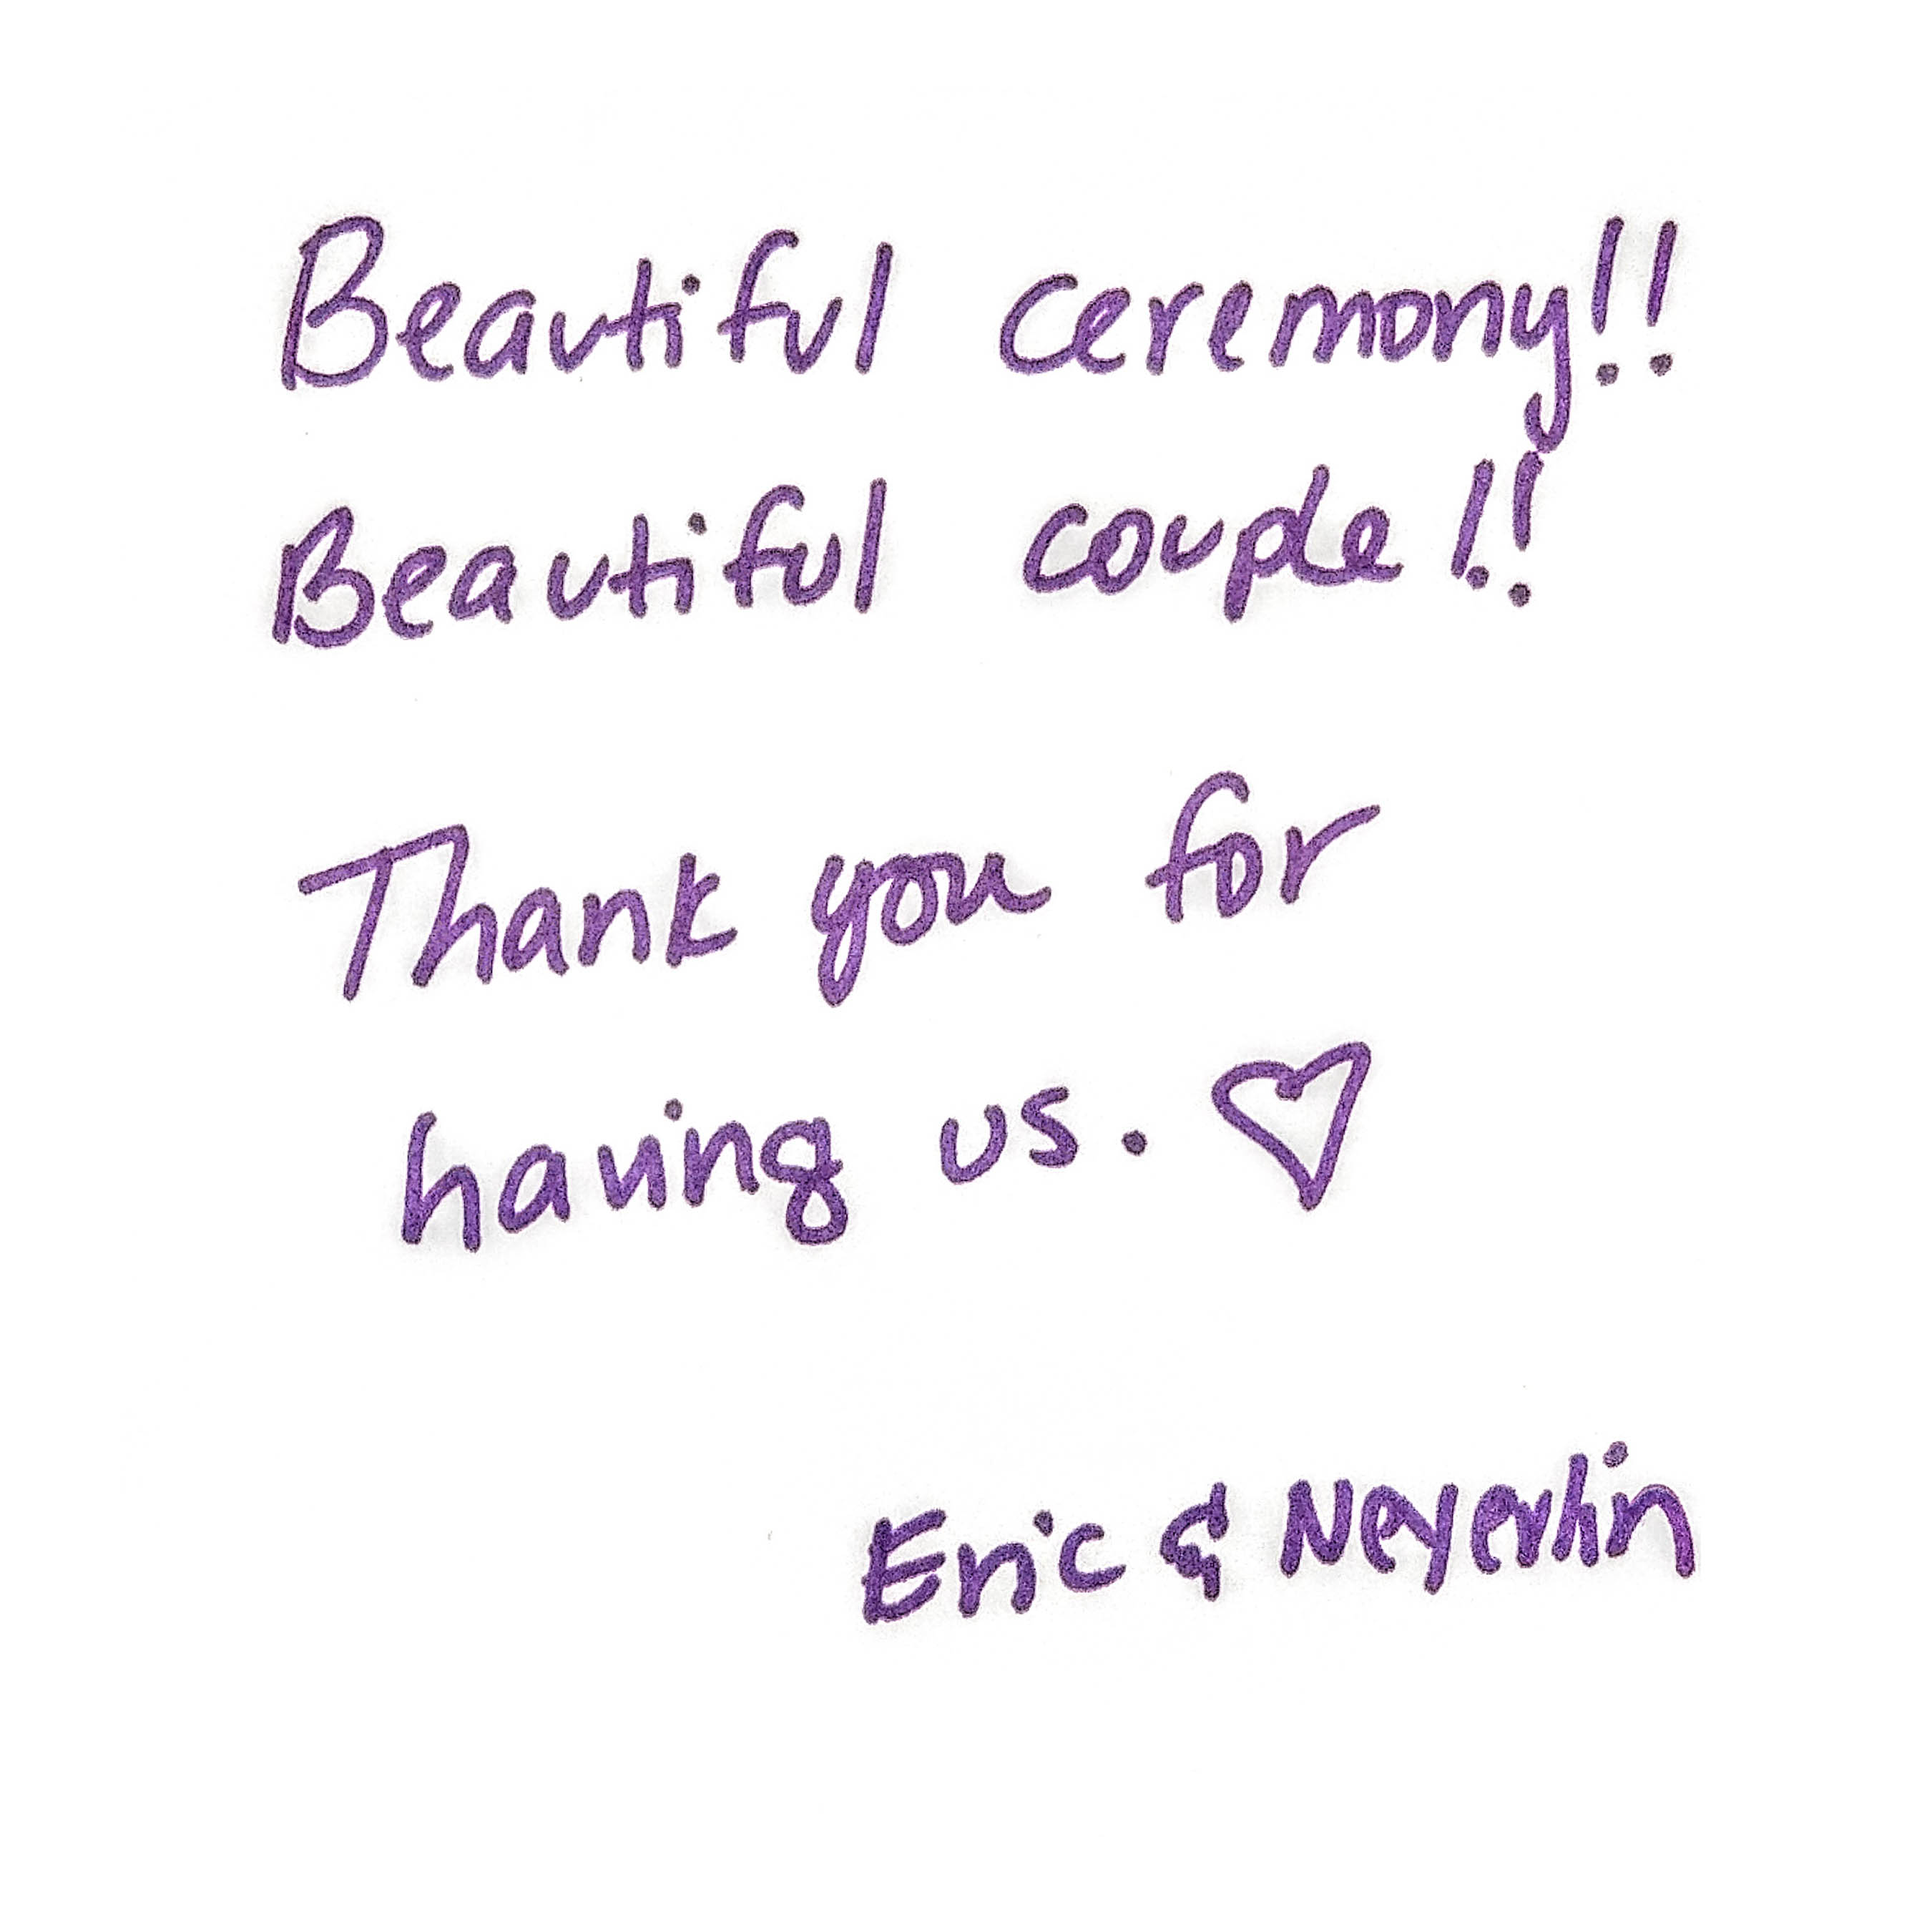 Beautiful ceremony!!
Beautiful couple!!
Thank you for
having us. ♡
Eric & Neyerlin